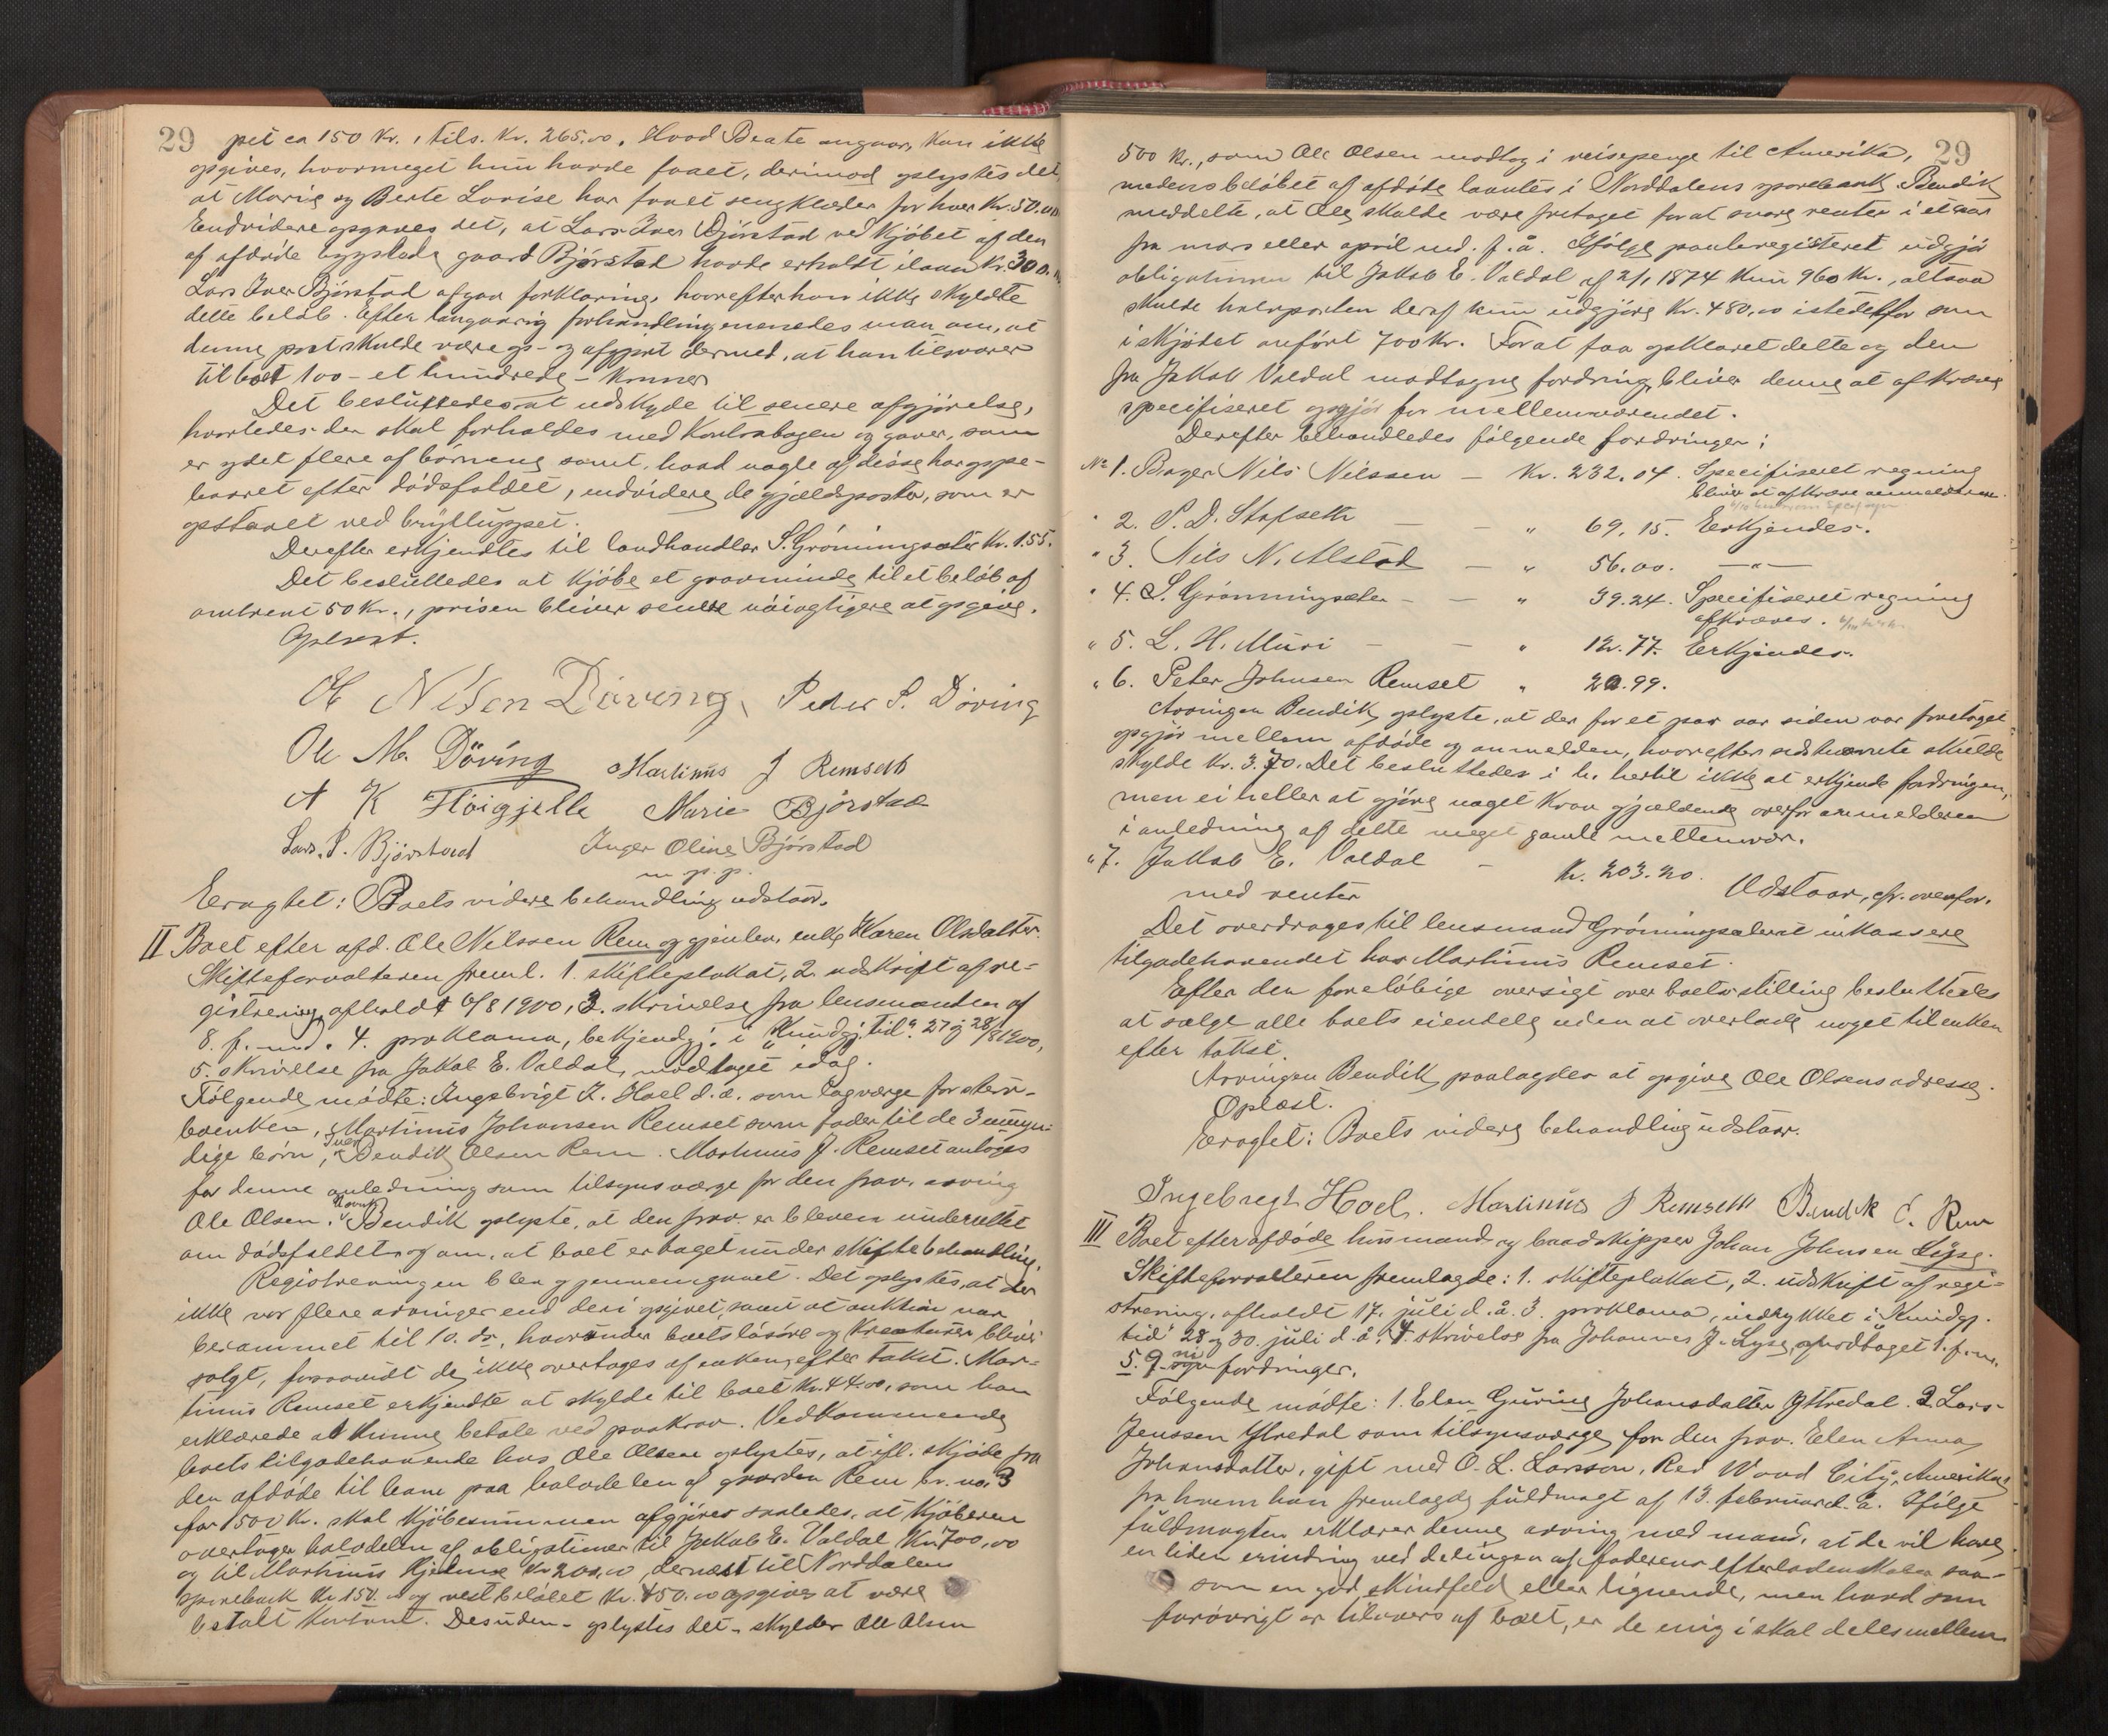 29 pet ca 150 Kr., tils. Kr. 265,00. Hvad Beate angaar, kan ikke
opgives, hvormeget hun havde faaet, derimod oplystes det,
at Marie og Berte Lovise har faaet sengklæder for hver Kr. 50.00
Endvidere opgaves det, at Lars Iver Bjørstad ved kjøbet af den
af afdøde bygslede gaard Bjørstad havde erholdt ilaan Kr. 300.
Lars Iver Bjørstad afgav forklaring, hvorefter han ikke skyldte
dette beløb. Efter langvarig forhandling enedes man om, at
denne post skulde være op- og afgjort dermed, at han tilsvarer
til boet 100 - et hundrede - kroner
Det besluttedes at udskyde til senere afgjørelse,
hvorledes der skal forholdes med kontrabogen og gaver, som
er ydet flere af børnene samt, hvad nogle af disse har oppe-
baaret efter dødsfaldet, endvidere de gjældsposter, som er
opstaaet ved bryllupper.
Derefter erkjendtes til landhandler S. Grønningsæter Kr. 1.55.
Det besluttedes at kjøbe et gravminde til et beløb af
omtrent 50 Kr., prisen bliver senere nøiagtigere at opgive.
Oplæst.
Ole Nilsen Døving, Peder S. Døving
Ole M. Døving Martinus J Remseth
A K Høigjelle Marie Bjørstad
Lars. P. Bjørstad Inger Oline Bjørstad
m. p. p.
Eragtet: Boets videre behandling udstaar.
II Boet efter afd. Ole Nilssen Rem og gjenlev. enke Karen Olsdatter.
Skifteforvalteren freml. 1. skifteplakat, 2. udskrift af re-
gistrering afholdt 6/8 1900, 3. skrivelse fra lensmanden af
8. f. md. 4. proklama, bekjendgj. i "Kundgj. tid." 27 og 28/8 1900,
5. skrivelse fra Jakob E. Valdal, modtaget idag.
Følgende mødte: Ingebrigt I. Hoel d. æ. som lagværge for sterv-
boenken, Martinus Johansen Remset som fader til de 3 umyn-
dige børn, Iver Bendik Olsen Rem. Martinus J. Remset antoges
for denne anledning som tilsynsværge for den frav. arving
Ole Olsen. Bendik oplyste, at den frav. er bleven underrettet
om dødsfaldet og om, at boet er taget under skiftebehandling.
Registreringen blev gjennemgaaet. Det oplystes, at der
ikke var flere arvinger end deri opgivet, samt at auktion var
berammet til 10. ds., hvorunder boets løsøre og kreaturer bliver
solgt, forsaavidt de ikke overtages af enken efter takst. Mar-
tinus Remset erkjendte at skylde til boet Kr. 44.00, som han
erklærede at kunne betale ved paakrav. Vedkommende
boets tilgodehavende hos Ole Olsen oplystes, at ifl. skjøde fra
den afdøde til ham paa halvdelen af gaarden Rem br. no. 3
for 1500 Kr. skal kjøbesummen afgjøres saaledes, at kjøberen
overtager halvdelen af obligationer til Jakob E. Valdal Kr. 700,00
og til Martinus Kr 200,00, dernæst til Norddalen
sparebank Kr 150.00 og restbeløbet Kr. 450.00 opgives at være
betalt kontant. Desuden - oplystes det - skylder Ole Olsen
29
500 Kr., som Ole Olsen modtog i reisepenge til Amerika,
medens beløbet af afdøde laantes i Norddalens sparebank. Bendik
meddelte, at Ole skulde være fritaget for at svare renter i et aar
fra mars eller april md. f. å. Ifølge panteregisteret udgjør
obligationen til Jakob E. Valdal af 2/1 1874 kun 960 Kr., altsaa
skulde halvparten deraf kun udgjøre Kr. 480,00 istedetfor som
i skjødet anført 700 Kr. For at faa opklaret dette og den
fra Jakob Valdal modtagne fordring, bliver denne at afkræve
specifiseret opgjør for mellemværendet.
Derefter behandledes følgende fordringer:
No 1. Bager Nils Nilssen — Kr. 232.04. Specifiseret regning
bliver at afkræve anmelderen.
" 2. P. D. Stafseth — — " 69.15. Erkjendes.
" 3. Nils N. Alstad — " 56.00. — " —
" 4. S. Grønningsæter — — " 39.24. Specifiseret regning
afkræves.
" 5. L. H. Muri — — " 12.77. Erkjendes.
" 6. Peter Johnsen Remset " 20.99.
Arvingen Bendik oplyste, at der for et par aar siden var foretaget
opgjør mellem afdøde og anmelden, hvorefter sidstnævnte skulde
skylde Kr. 3.70. Det besluttedes i h. hertil ikke at erkjende fordringen,
men ei heller at gjøre noget krav gjældende overfor anmelderen
i anledning af dette meget gamle mellemvær.
" 7. Jakob E. Valdal — Kr. 203.20.
med renter Udstaar, cfr. ovenfor.
Det overdrages til lensmand Grønningsæter at inkassere
tilgodehavendet hos Martinus Remset.
Efter den foreløbige oversigt over boets stilling besluttedes
at sælge alle boets eiendele uden at overlade noget til enken
efter takst.
Arvingen Bendik paalagdes at opgive Ole Olsens adresse.
Oplæst.
Eragtet: Boets videre behandling udstaar.
Ingebregt Hoel. Martinus J Remseth Bendik O. Rem
III Boet efter afdøde husmand og baadskipper Johan Johnsen Lyse.
Skifteforvalteren fremlagde: 1. skifteplakat, 2. udskrift af regi-
strering, afholdt 17. juli d. å. 3. proklama, indrykket i "Kundgj.
tid" 28 og 30. juli d. å. 4. skrivelse fra Johannes J. Lyse, modtaget 1. f. m.
5. 9 ni fordringer.
Følgende mødte: 1. Elen Gurine Johansdatter Yttredal. 2. Lars
Jenssen Ytredal som tilsynsværge for den frav. Elen Anna
Johansdatter, gift med O. L. Larsson, Red Wood City, Amerika,
fra hvem han fremlagde fuldmagt af 13. februar d. å. Ifølge
fuldmagten erklærer denne arving med mand, at de vil have
en liden erindring ved delingen af faderens efterladenskaber saa-
som en god skindfeld eller lignende, men hvad som
forøvrigt er tilovers af boet, er de enig i skal deles mellem